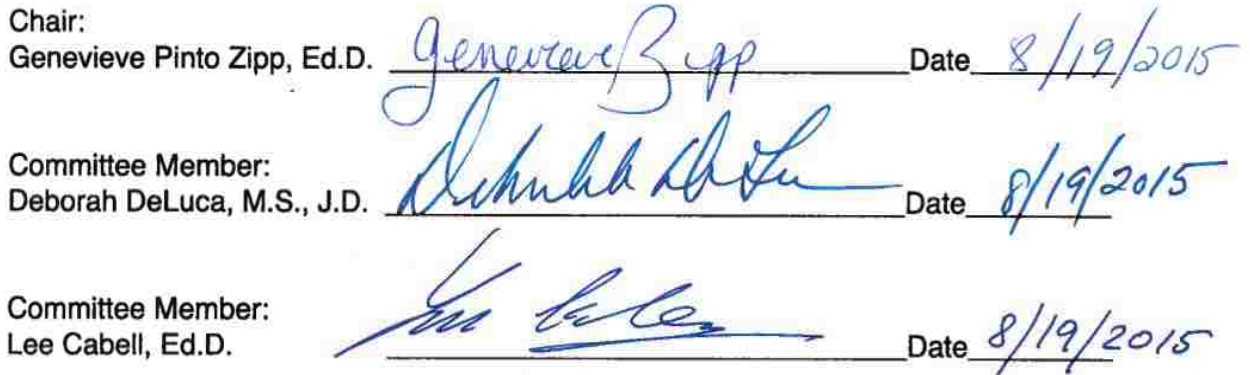 Chair:
Genevieve Pinto Zipp, Ed.D. Genevieve Zipp Date 8/19/2015
Committee Member:
Deborah DeLuca, M.S., J.D. Deborah DeLuca Date 8/19/2015
Committee Member:
Lee Cabell, Ed.D. Date 8/19/2015